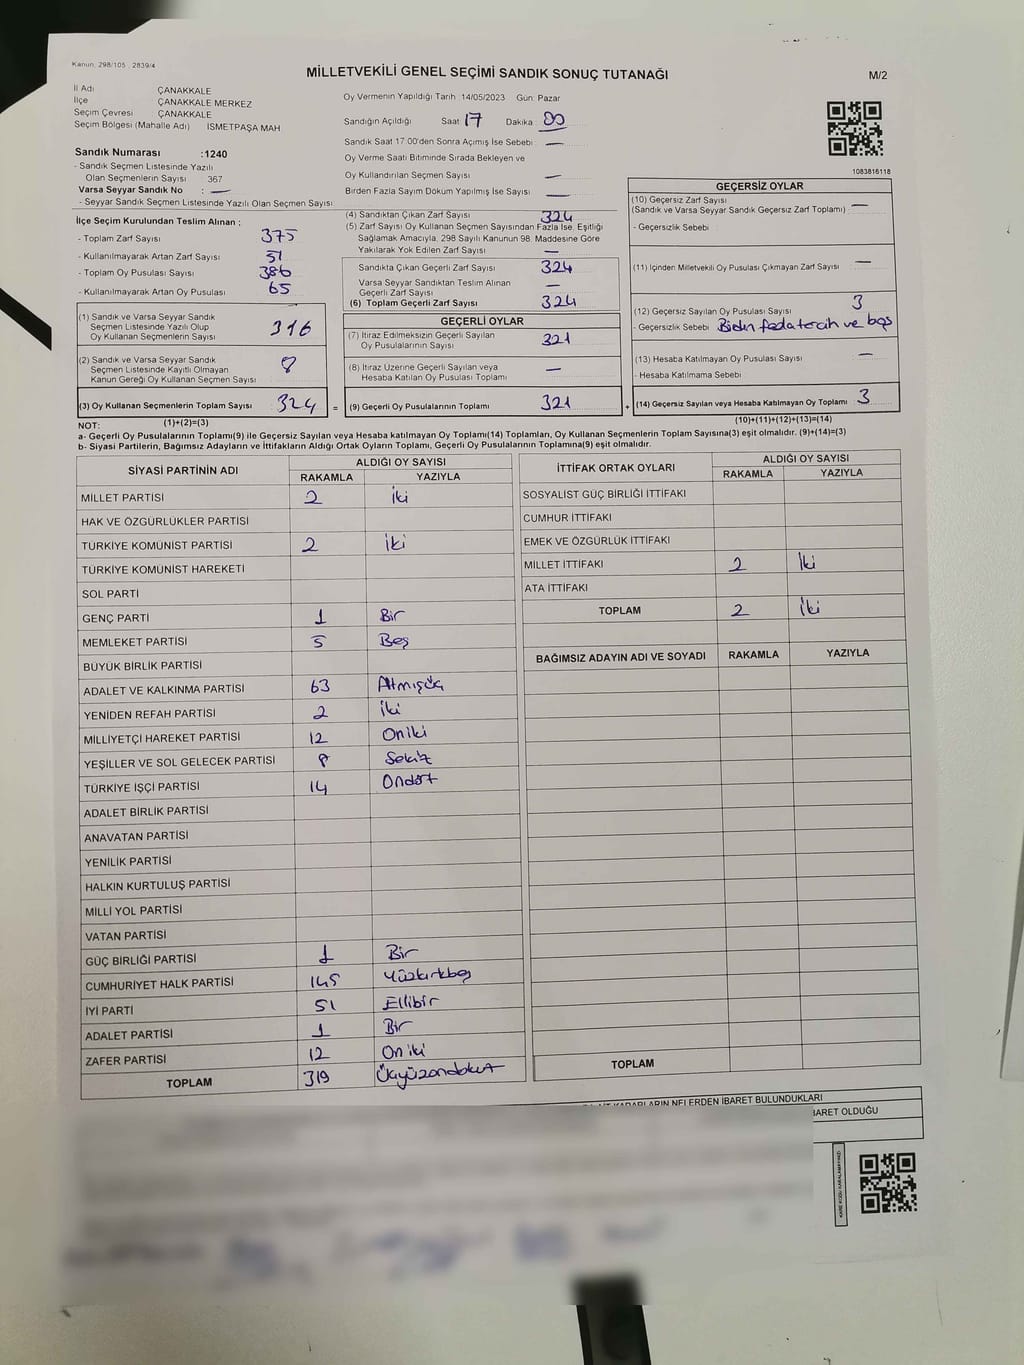 Kanun: 298/105 , 2839/4
MİLLETVEKİLİ GENEL SEÇİMİ SANDIK SONUÇ TUTANAĞI
M/2
İl Adı ÇANAKKALE
İlçe ÇANAKKALE MERKEZ
Seçim Çevresi ÇANAKKALE
Seçim Bölgesi (Mahalle Adı) İSMETPAŞA MAH
Sandık Numarası :1240
- Sandık Seçmen Listesinde Yazılı
Olan Seçmenlerin Sayısı 367
Varsa Seyyar Sandık No : —
- Seyyar Sandık Seçmen Listesinde Yazılı Olan Seçmen Sayısı:
Oy Vermenin Yapıldığı Tarih :14/05/2023 Gün: Pazar
Sandığın Açıldığı Saat 17 Dakika 00
Sandık Saat 17:00'den Sonra Açımış İse Sebebi —
Oy Verme Saati Bitiminde Sırada Bekleyen ve
Oy Kullandırılan Seçmen Sayısı —
Birden Fazla Sayım Döküm Yapılmış İse Sayısı —
1083816118
İlçe Seçim Kurulundan Teslim Alınan :
- Toplam Zarf Sayısı 375
- Kullanılmayarak Artan Zarf Sayısı 51
- Toplam Oy Pusulası Sayısı 386
- Kullanılmayarak Artan Oy Pusulası 65
(1) Sandık ve Varsa Seyyar Sandık
Seçmen Listesinde Yazılı Olup
Oy Kullanan Seçmenlerin Sayısı 316
(2) Sandık ve Varsa Seyyar Sandık
Seçmen Listesinde Kayıtlı Olmayan
Kanun Gereği Oy Kullanan Seçmen Sayısı 8
(3) Oy Kullanan Seçmenlerin Toplam Sayısı 324
(1)+(2)=(3)
(4) Sandıktan Çıkan Zarf Sayısı 324
(5) Zarf Sayısı Oy Kullanan Seçmen Sayısından Fazla İse, Eşitliği
Sağlamak Amacıyla, 298 Sayılı Kanunun 98. Maddesine Göre
Yakılarak Yok Edilen Zarf Sayısı —
Sandıkta Çıkan Geçerli Zarf Sayısı 324
Varsa Seyyar Sandıktan Teslim Alınan
Geçerli Zarf Sayısı —
(6) Toplam Geçerli Zarf Sayısı 324
GEÇERLİ OYLAR
(7) İtiraz Edilmeksizin Geçerli Sayılan
Oy Pusulalarının Sayısı 321
(8) İtiraz Üzerine Geçerli Sayılan veya
Hesaba Katılan Oy Pusulası Toplamı —
= (9) Geçerli Oy Pusulalarının Toplamı 321
GEÇERSİZ OYLAR
(10) Geçersiz Zarf Sayısı
(Sandık ve Varsa Seyyar Sandık Geçersiz Zarf Toplamı) —
- Geçersizlik Sebebi :
(11) İçinden Milletvekili Oy Pusulası Çıkmayan Zarf Sayısı —
(12) Geçersiz Sayılan Oy Pusulası Sayısı 3
- Geçersizlik Sebebi tercih ve boş
(13) Hesaba Katılmayan Oy Pusulası Sayısı —
- Hesaba Katılmama Sebebi
+ (14) Geçersiz Sayılan veya Hesaba Katılmayan Oy Toplamı 3
(10)+(11)+(12)+(13)=(14)
NOT:
a- Geçerli Oy Pusulalarının Toplamı(9) ile Geçersiz Sayılan veya Hesaba katılmayan Oy Toplamı(14) Toplamları, Oy Kullanan Seçmenlerin Toplam Sayısına(3) eşit olmalıdır. (9)+(14)=(3)
b- Siyasi Partilerin, Bağımsız Adayların ve İttifakların Aldığı Ortak Oyların Toplamı, Geçerli Oy Pusulalarının Toplamına(9) eşit olmalıdır.
SİYASİ PARTİNİN ADI ALDIĞI OY SAYISI
RAKAMLA YAZIYLA
MİLLET PARTİSİ 2 iki
HAK VE ÖZGÜRLÜKLER PARTİSİ
TÜRKİYE KOMÜNİST PARTİSİ 2 iki
TÜRKİYE KOMÜNİST HAREKETİ
SOL PARTİ
GENÇ PARTİ 1 Bir
MEMLEKET PARTİSİ 5 Beş
BÜYÜK BİRLİK PARTİSİ
ADALET VE KALKINMA PARTİSİ 63 Altmışüç
YENİDEN REFAH PARTİSİ 2 iki
MİLLİYETÇİ HAREKET PARTİSİ 12 Oniki
YEŞİLLER VE SOL GELECEK PARTİSİ 8 Sekiz
TÜRKİYE İŞÇİ PARTİSİ 14 Ondört
ADALET BİRLİK PARTİSİ
ANAVATAN PARTİSİ
YENİLİK PARTİSİ
HALKIN KURTULUŞ PARTİSİ
MİLLİ YOL PARTİSİ
VATAN PARTİSİ
GÜÇ BİRLİĞİ PARTİSİ 1 Bir
CUMHURİYET HALK PARTİSİ 145 Yüzkırkbeş
İYİ PARTİ 51 Ellibir
ADALET PARTİSİ 1 Bir
ZAFER PARTİSİ 12 Oniki
TOPLAM 319 Üçyüzondokuz
İTTİFAK ORTAK OYLARI ALDIĞI OY SAYISI
RAKAMLA YAZIYLA
SOSYALİST GÜÇ BİRLİĞİ İTTİFAKI
CUMHUR İTTİFAKI
EMEK VE ÖZGÜRLÜK İTTİFAKI
MİLLET İTTİFAKI 2 İki
ATA İTTİFAKI
TOPLAM 2 İki
BAĞIMSIZ ADAYIN ADI VE SOYADI RAKAMLA YAZIYLA
TOPLAM
KARARLARIN NELERDEN İBARET BULUNDUKLARI
İBARET OLDUĞU